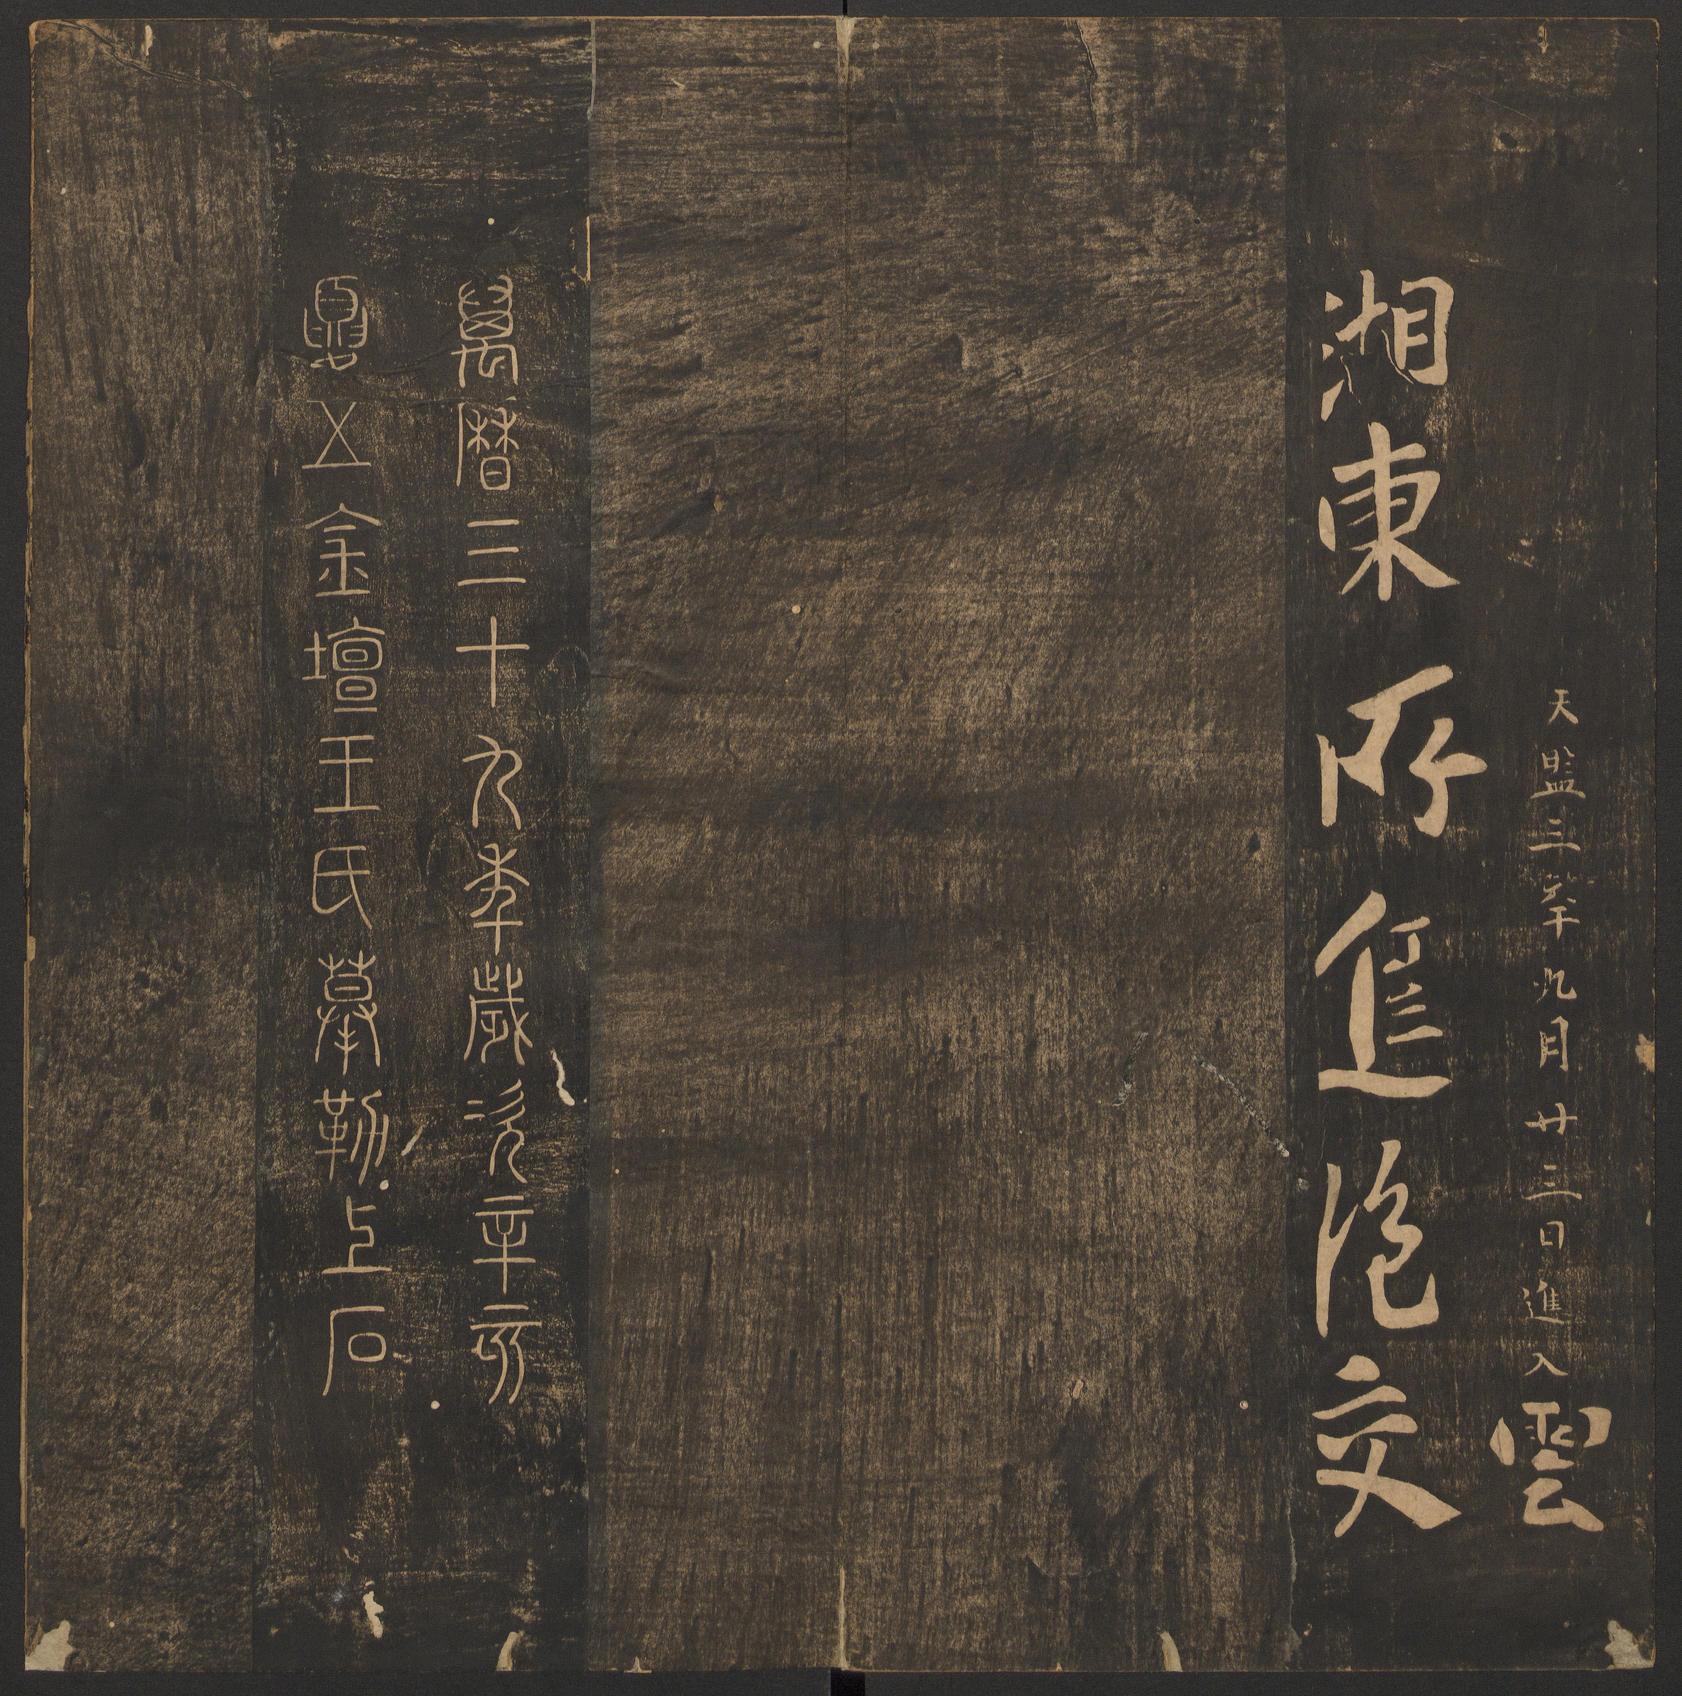 天監三年九月廿三日進入雲
湘東所進絶交
萬曆三十九年歲次辛亥
夏五金壇王氏摹勒上石